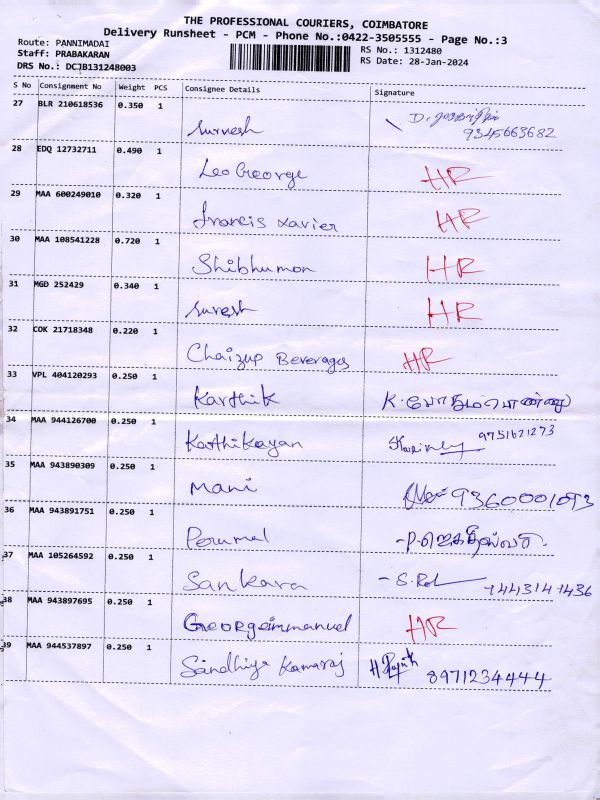 THE PROFESSIONAL COURIERS, COIMBATORE
Delivery Runsheet - PCM - Phone No.:0422-3505555 - Page No.:3
Route: PANNIMADAI
RS No.: 1312480
Staff: PRABAKARAN
RS Date: 28-Jan-2024
DRS No.: DCJB131248003
S No Consignment No Weight PCS Consignee Details Signature
27 BLR 210618536 0.350 1
Survesh 9345663682
28 EDQ 12732711 0.490 1
Leo George HR
29 MAA 600249010 0.320 1
francis xavier HR
30 MAA 108541228 0.720 1
Shibhumon HR
31 MGD 252429 0.340 1
Suresh HR
32 COK 21718348 0.220 1
Chaizup Beverages HR
33 VPL 404120293 0.250 1
Karthik K.
34 MAA 944126700 0.250 1
Karthikayan 9751621273
35 MAA 943890309 0.250 1
Mani 9360001093
36 MAA 943891751 0.250 1
Perumal
37 MAA 105264592 0.250 1
Sankara
38 MAA 943897695 0.250 1
Georgeimmanuel HR
39 MAA 944537897 0.250 1
Sandhiya Kamaraj 8971234444